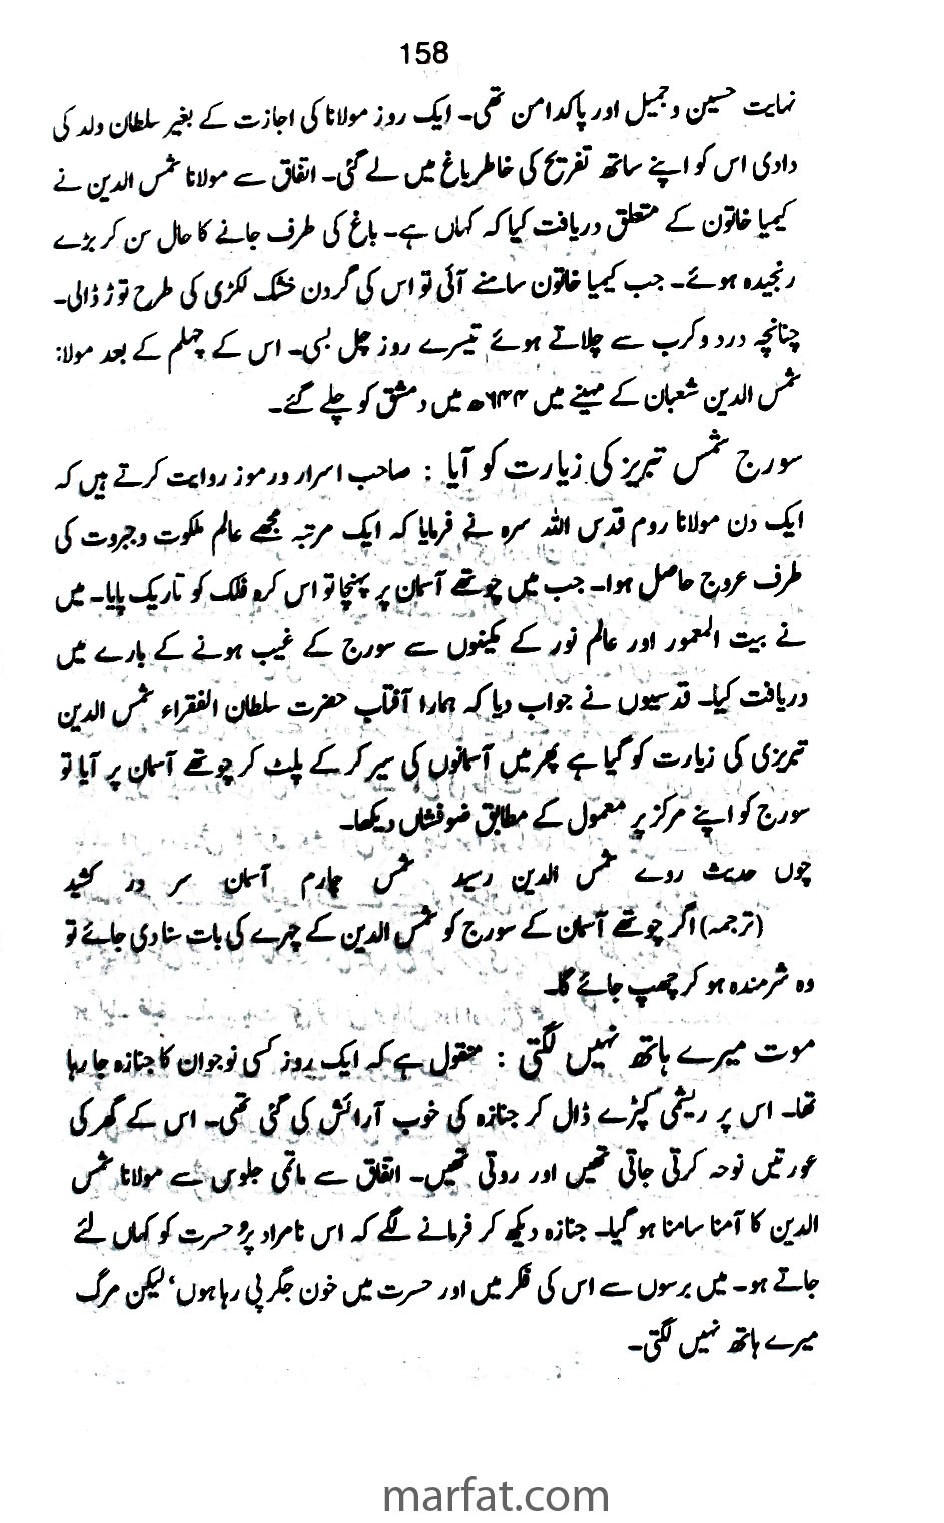 158
نہایت حسین و جمیل اور پاکدامن تھی۔ ایک روز مولانا کی اجازت کے بغیر سلطان ولد کی
دادی اس کو اپنے ساتھ تفریح کی خاطر باغ میں لے گئی۔ اتفاق سے مولانا شمس الدین نے
کیمیا خاتون کے متعلق دریافت کیا کہ کہاں ہے۔ باغ کی طرف جانے کا حال سن کر بڑے
رنجیدہ ہوئے۔ جب کیمیا خاتون سامنے آئی تو اس کی گردن خشک لکڑی کی طرح توڑ ڈالی۔
چنانچہ درد و کرب سے چلاتے ہوئے تیسرے روز چل بسی۔ اس کے چہلم کے بعد مولانا
شمس الدین شعبان کے مہینے میں ۶۴۴ھ میں دمشق کو چلے گئے۔
سورج شمس تبریز کی زیارت کو آیا : صاحب اسرار ورموز روایت کرتے ہیں کہ
ایک دن مولانا روم قدس اللہ سرہ نے فرمایا کہ ایک مرتبہ مجھے عالم ملکوت و جبروت کی
طرف عروج حاصل ہوا۔ جب میں چوتھے آسمان پر پہنچا تو اس کرہ فلک کو تاریک پایا۔ میں
نے بیت المعمور اور عالم نور کے مکینوں سے سورج کے غیب ہونے کے بارے میں
دریافت کیا۔ قدسیوں نے جواب دیا کہ ہمارا آفتاب حضرت سلطان الفقراء شمس الدین
تبریزی کی زیارت کو گیا ہے پھر میں آسمانوں کی سیر کر کے پلٹ کر چوتھے آسمان پر آیا تو
سورج کو اپنے مرکز پر معمول کے مطابق ضوفشاں دیکھا۔
چوں حدیث روے شمس الدین رسید شمس چہارم آسمان سر در کشید
(ترجمہ) اگر چوتھے آسمان کے سورج کو شمس الدین کے چہرے کی بات سنا دی جائے تو
وہ شرمندہ ہو کر چھپ جائے گا۔
موت میرے ہاتھ نہیں لگتی : منقول ہے کہ ایک روز کسی نوجوان کا جنازہ جا رہا
تھا۔ اس پر ریشمی کپڑے ڈال کر جنازہ کی خوب آرائش کی گئی تھی۔ اس کے گھر کی
عورتیں نوحہ کرتی جاتی تھیں اور روتی تھیں۔ اتفاق سے ماتمی جلوس سے مولانا شمس
الدین کا آمنا سامنا ہو گیا۔ جنازہ دیکھ کر فرمانے لگے کہ اس نامراد پر حسرت کو کہاں لئے
جاتے ہو۔ میں برسوں سے اس کی فکر میں اور حسرت میں خون جگر پی رہا ہوں، لیکن مرگ
میرے ہاتھ نہیں لگتی۔
marfat.com